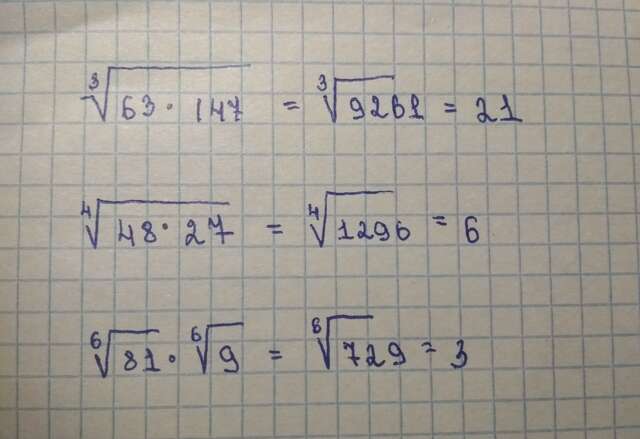 ∛63 · 147 = ∛9261 = 21
∜48 · 27 = ∜1296 = 6
⁶√81 · ⁶√9 = ⁶√729 = 3